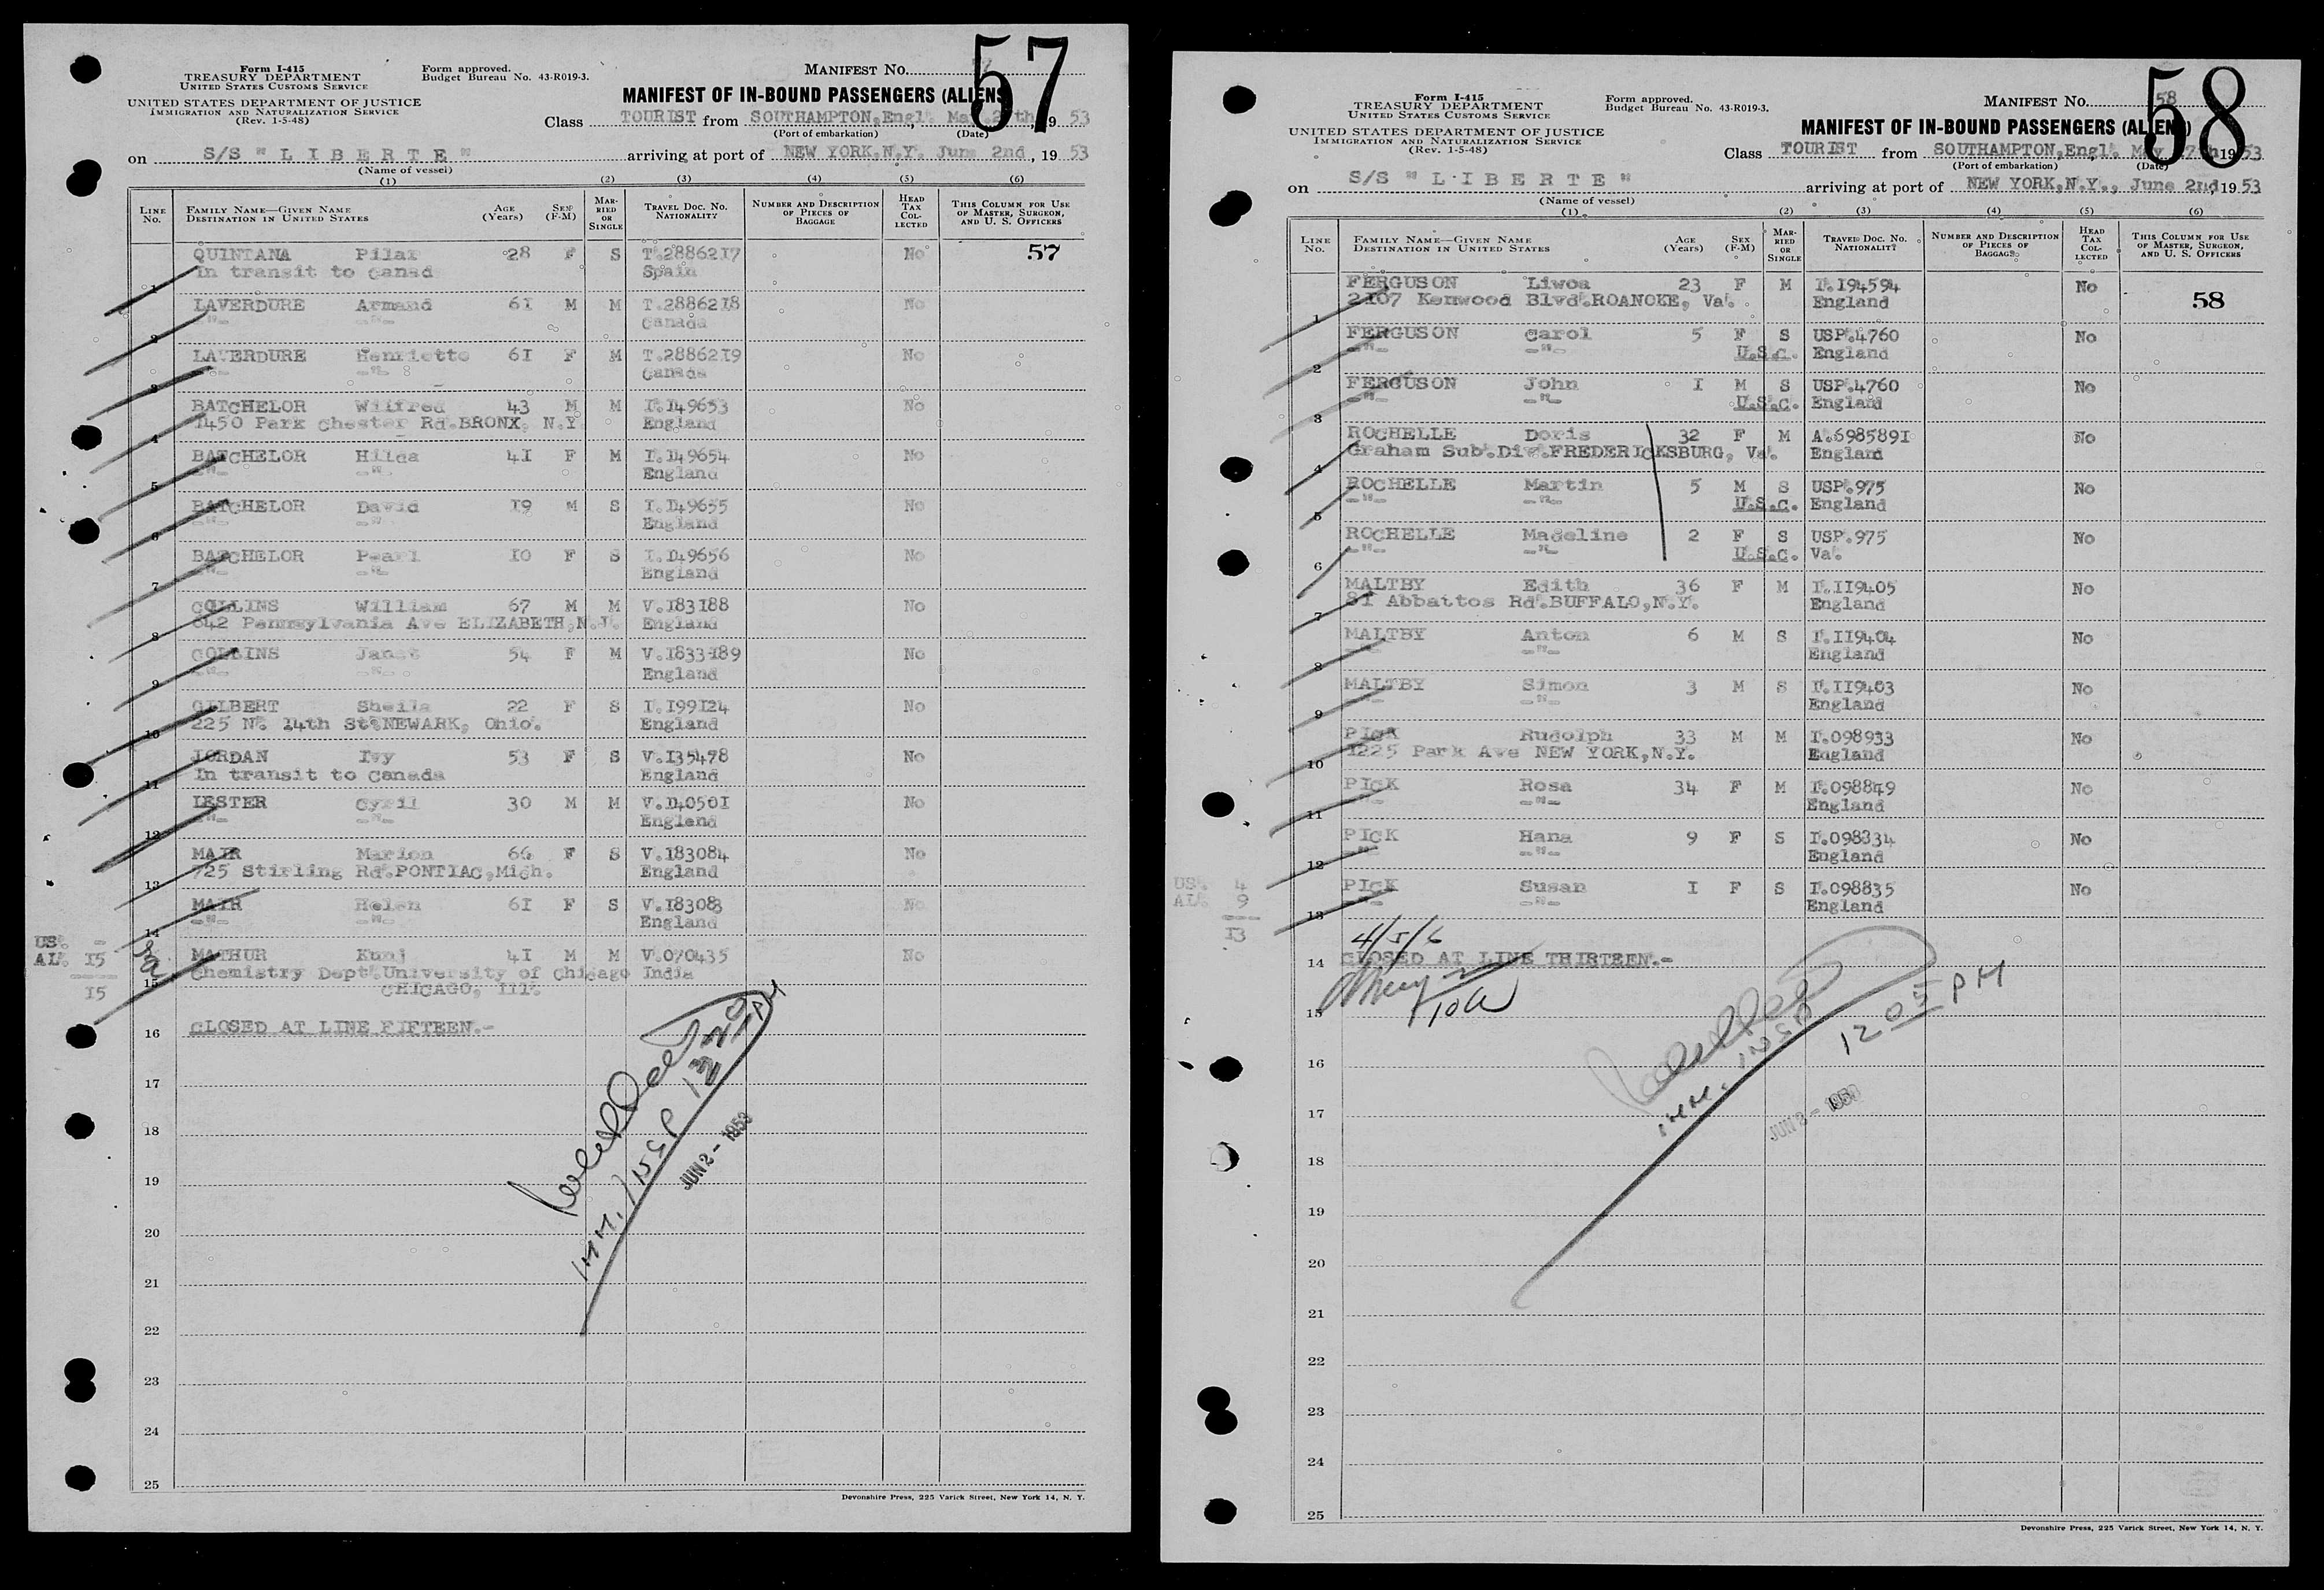 Form I-415
TREASURY DEPARTMENT
UNITED STATES CUSTOMS SERVICE
UNITED STATES DEPARTMENT OF JUSTICE
IMMIGRATION AND NATURALIZATION SERVICE
(Rev. 1-5-48)
Form approved.
Budget Bureau No. 43-R019-3.
MANIFEST No. 57
MANIFEST OF IN-BOUND PASSENGERS (ALIENS)
Class TOURIST from SOUTHAMPTON,Engl. 19 53
(Port of embarkation) (Date)
on S/S "LIBERTE" arriving at port of NEW YORK,N.Y. June 2nd, 19 53
(Name of vessel)
(1) (2) (3) (4) (5) (6)
LINE No. FAMILY NAME—GIVEN NAME DESTINATION IN UNITED STATES AGE (Years) SEX (F-M) MARRIED OR SINGLE TRAVEL DOC. NO. NATIONALITY NUMBER AND DESCRIPTION OF PIECES OF BAGGAGE HEAD TAX COLLECTED THIS COLUMN FOR USE OF MASTER, SURGEON, AND U. S. OFFICERS
QUINTANA Pilar 28 F S T.2886217 No 57
1 In transit to Canad Spain
LAVERDURE Armand 61 M M T.2886218 No
2 -"- -"- Canada
LAVERDURE Henriette 61 F M T.2886219 No
3 -"- -"- Canada
BATCHELOR Wilfred 43 M M I.149653 No
4 1450 Park Chester Rd.BRONX, N.Y. England
BATCHELOR Hilda 41 F M I.149654 No
5 -"- -"- England
BATCHELOR David 19 M S I.149655 No
6 -"- -"- England
BATCHELOR Pearl 10 F S I.149656 No
7 -"- -"- England
COLLINS William 67 M M V.183188 No
8 842 Pennsylvania Ave ELIZABETH,N.J. England
COLLINS Janet 54 F M V.1833189 No
9 -"- -"- England
GILBERT Sheila 22 F S I.199124 No
10 225 N. 14th St.NEWARK, Ohio. England
JORDAN Ivy 53 F S V.135478 No
11 In transit to Canada England
LESTER Cyril 30 M M V.140501 No
12 -"- -"- England
MAIR Marion 66 F S V.183084 No
13 725 Stirling Rd.PONTIAC,Mich. England
MAIR Helen 61 F S V.183083 No
14 -"- -"- England
US. -
AL. 15
15
MATHUR Kunj 41 M M V.070435 No
15 Chemistry Dept.University of Chicago India
CHICAGO, Ill.
16 CLOSED AT LINE FIFTEEN.-
17
18
19
20
21
22
23
24
25
IMM. INSP
JUN 2 - 1953
Devonshire Press, 225 Varick Street, New York 14, N. Y.
Form I-415
TREASURY DEPARTMENT
UNITED STATES CUSTOMS SERVICE
UNITED STATES DEPARTMENT OF JUSTICE
IMMIGRATION AND NATURALIZATION SERVICE
(Rev. 1-5-48)
Form approved.
Budget Bureau No. 43-R019-3.
MANIFEST No. 58
58
MANIFEST OF IN-BOUND PASSENGERS (ALIENS)
Class TOURIST from SOUTHAMPTON,Engl. May 19 53
(Port of embarkation) (Date)
on S/S "LIBERTE" arriving at port of NEW YORK,N.Y., June 2nd, 19 53
(Name of vessel)
(1) (2) (3) (4) (5) (6)
LINE No. FAMILY NAME—GIVEN NAME DESTINATION IN UNITED STATES AGE (Years) SEX (F-M) MARRIED OR SINGLE TRAVEL DOC. NO. NATIONALITY NUMBER AND DESCRIPTION OF PIECES OF BAGGAGE HEAD TAX COLLECTED THIS COLUMN FOR USE OF MASTER, SURGEON, AND U. S. OFFICERS
FERGUSON Liwoa 23 F M I.194594 No
1 2107 Kenwood Blvd.ROANOKE, Va. England 58
FERGUSON Carol 5 F S USP.4760 No
2 -"- -"- U.S.C. England
FERGUSON John 1 M S USP.4760 No
3 -"- -"- U.S.C. England
ROCHELLE Doris 32 F M A.6985891 No
4 Graham Sub.Div.FREDERICKSBURG, Va. England
ROCHELLE Martin 5 M S USP.975 No
5 -"- -"- U.S.C. England
ROCHELLE Madeline 2 F S USP.975 No
6 -"- -"- U.S.C. Va.
MALTBY Edith 36 F M I.119405 No
7 81 Abbattos Rd.BUFFALO,N.Y. England
MALTBY Anton 6 M S I.119404 No
8 -"- England
MALTBY Simon 3 M S I.119403 No
9 -"- England
PICK Rudolph 33 M M I.098933 No
10 1225 Park Ave NEW YORK,N.Y. England
PICK Rosa 34 F M I.098849 No
11 -"- -"- England
PICK Hana 9 F S I.098334 No
12 -"- -"- England
US. 4
AL. 9
13
PICK Susan 1 F S I.098835 No
13 -"- -"- England
4/5/6
14 CLOSED AT LINE THIRTEEN.-
15
16
17
18
19
20
21
22
23
24
25
IMM. INSP
12 05 PM
Devonshire Press, 225 Varick Street, New York 14, N. Y.